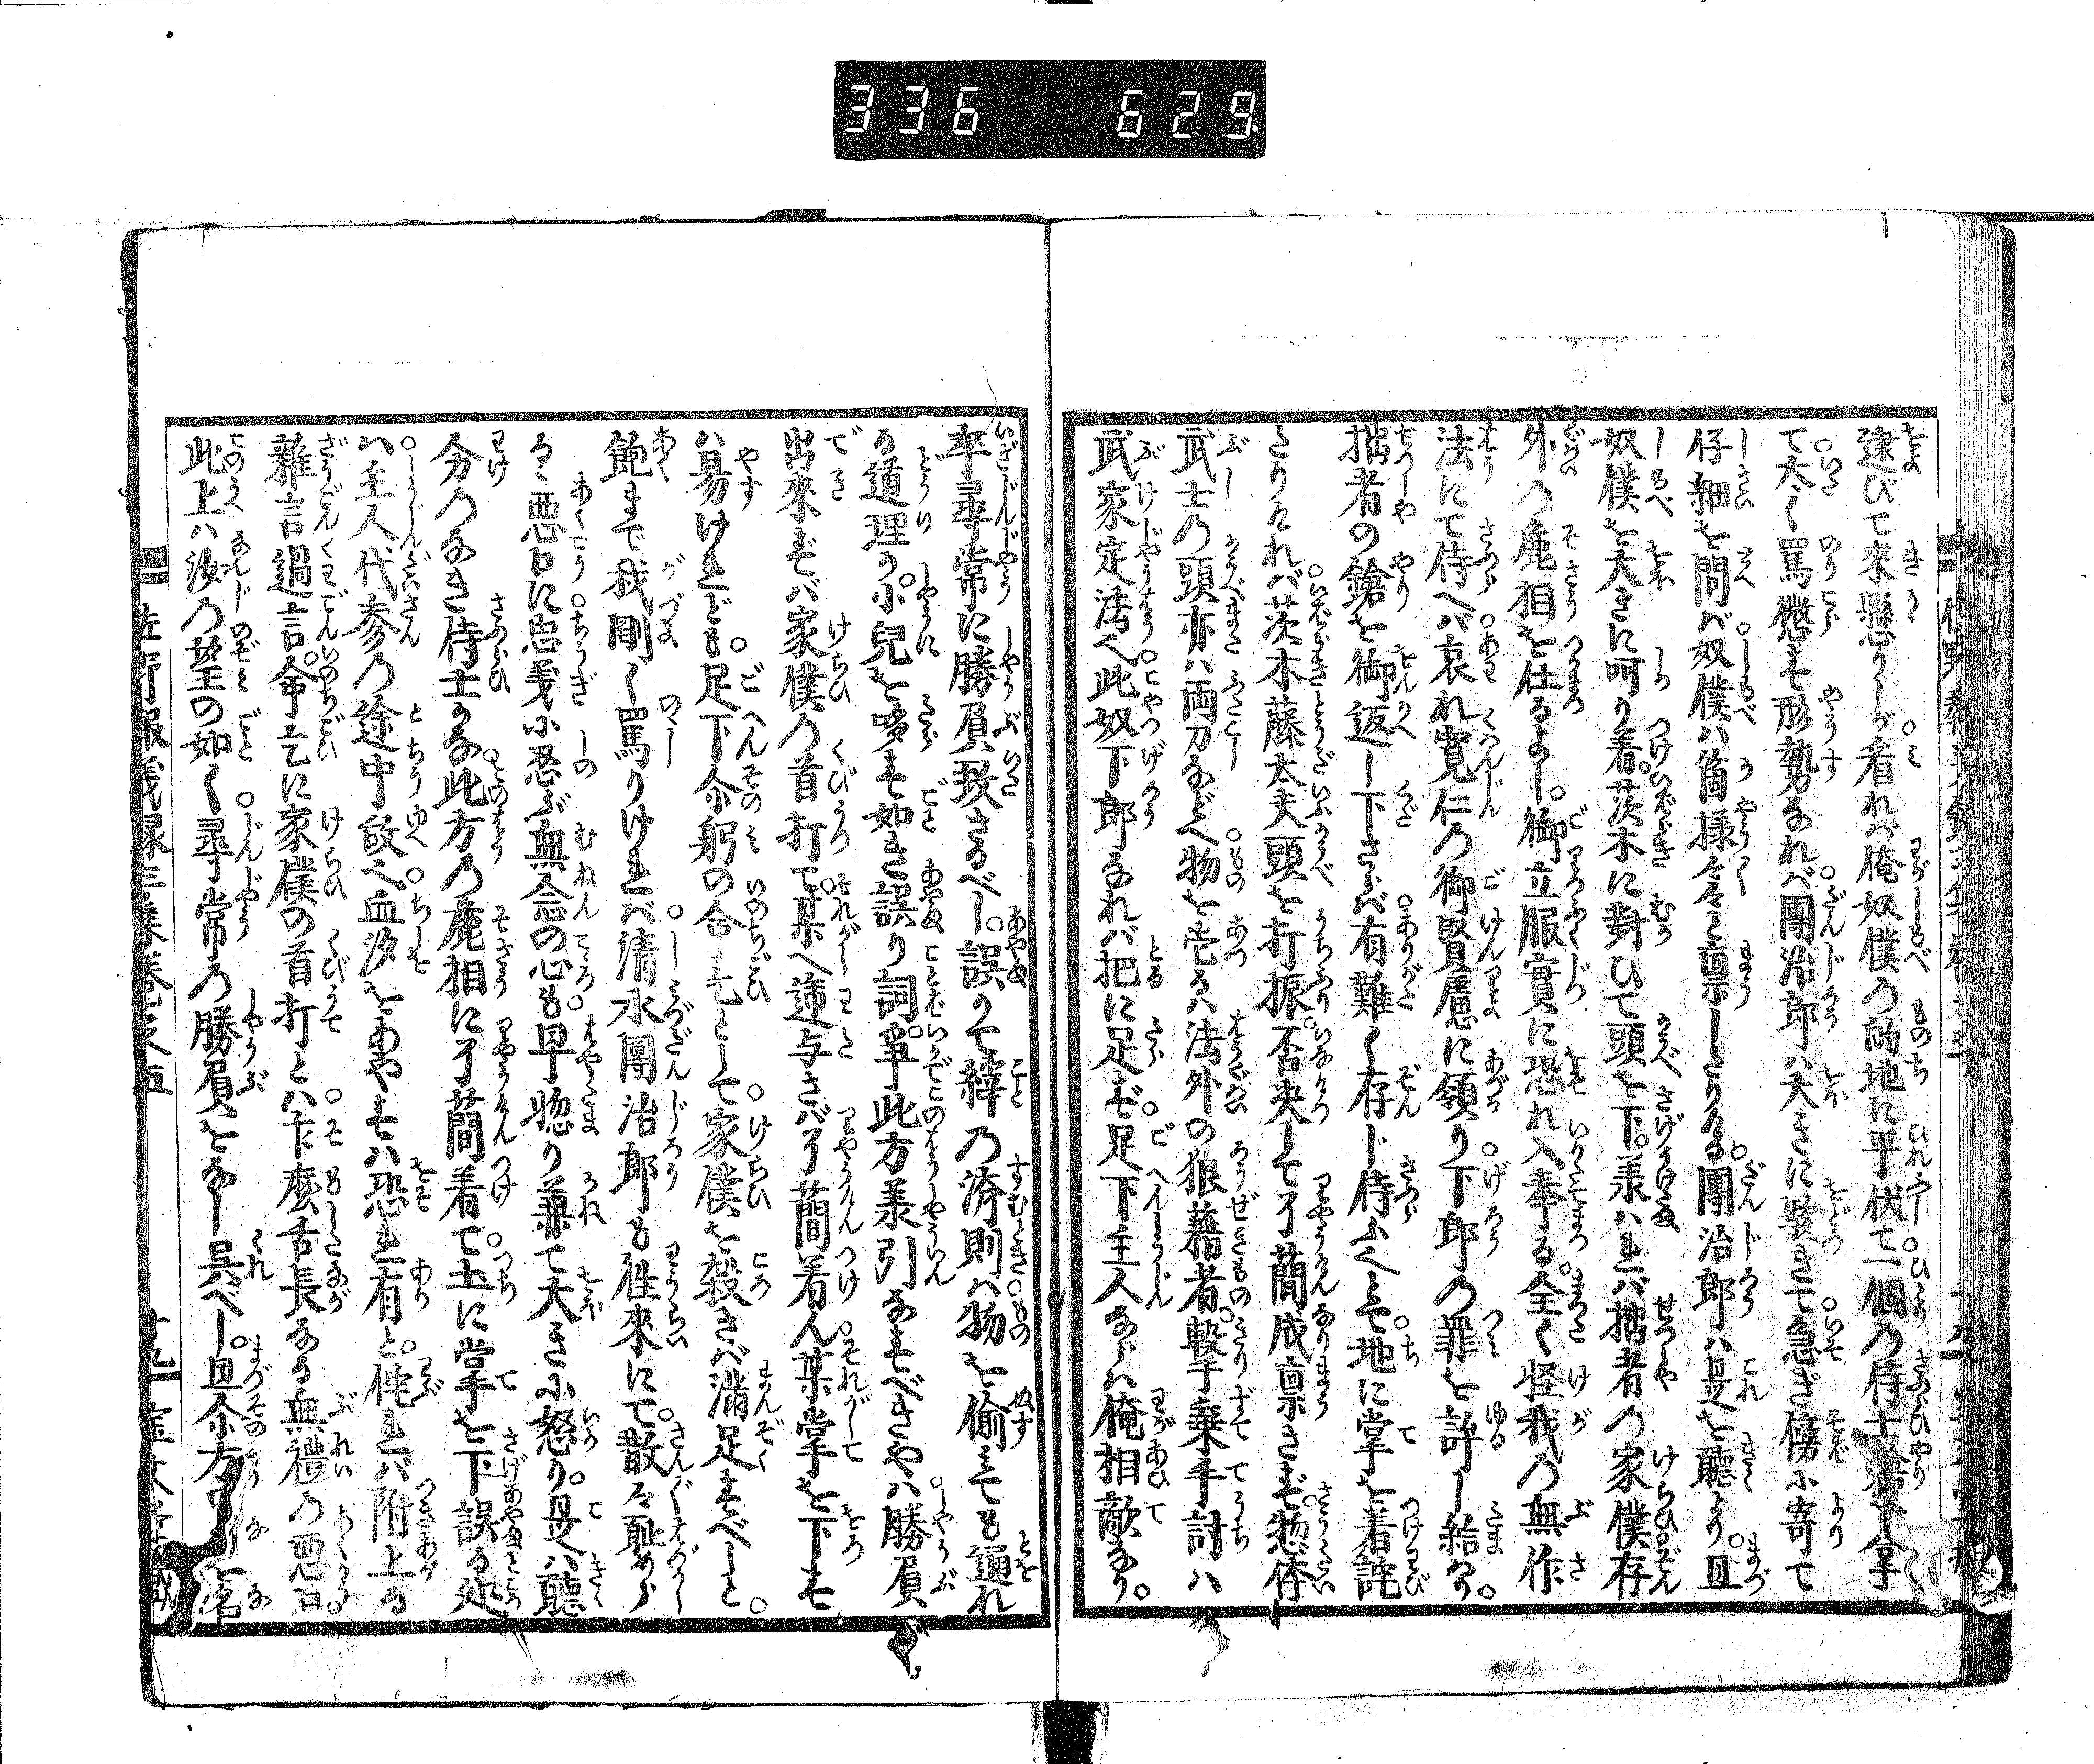 336 629
逮びて來懸りしが看れバ俺奴僕の的地に平伏て一個の侍士
て太く罵懲す形勢なれバ團治郎ハ大きに駭きて急ぎ傍に寄て
仔細を問バ奴僕ハ箇樣々々と禀しける。團治郎ハ是を聽より。且
奴僕を大きに呵り着。茨木に對ひて頭を下。羕ハれバ拙者の家僕存
外の麁相を仕るよし。御立服實に恐れ入奉る。全く怪我の無作
法にて侍へバ哀れ寛仁の御賢慮に領り下郎の罪を許し給へ。
拙者の鎗を御返し下さらバ有難く存じ侍ふとて地に掌を着詫
たりけれバ茨木藤太夫頭を打振。否決して了簡成禀さず。惣侍
武士の頭亦ハ両刀などへ物を当るハ法外の狼藉者。撃棄手討ハ
武家定法へ此奴下郎なれバ把に足ず。足下主人ならバ俺相敵なり。
率尋常に勝屓致さるべし。誤りて縡の済則ハ物を偷ミても逋れ
る道理か。小兒を哆す如き誤り詞。爭此方羕引なすべきやハ勝屓
出來ずバ家僕の首打て。某へ逓与さバ了簡着ん某掌を下す
ハ易けれども。足下尒躬の命乞として家僕を殺さバ満足すべしと。
飽まで我剛く罵りけれバ清水團治郎も徃來にて。散々耻めら
るゝ悪口に忠義に忍ぶ無念の心も早惣り兼て大きに怒り。是ハ聽
分のなき侍士かな此方の麁相に了簡着て土に掌を下誤る処
ハ主人代参の途中故へ血汐をあやすハ恐れ有と。侘れバ附上る
雑言過言。命乞に家僕の首打とハ卞麼舌長なる無禮の悪口
此上ハ汝の望の如く尋常の勝屓をなし呉べし。且尒方